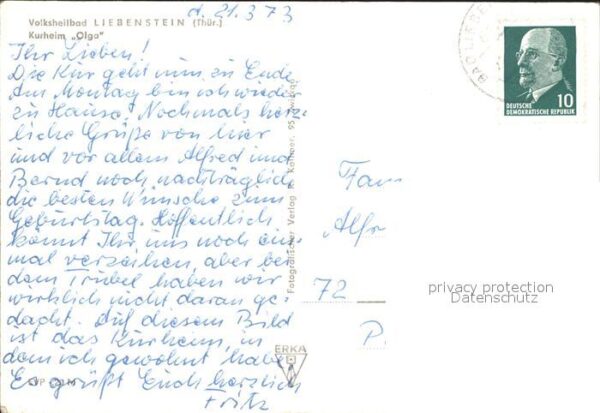 d. 21.3.73
Volksheilbad LIEBENSTEIN (Thür.)
Kurheim „Olga"
Ihr Lieben!
Die Kur geht nun zu Ende
Am Montag bin ich wieder
zu Hause. Nochmals herz-
liche Grüße von hier
und vor allem Alfred und
Bernd noch nachträglich
die besten Wünsche zum
Geburtstag. Hoffentlich
könnt Ihr uns noch ein-
mal verzeihen, aber bei
dem Trubel haben wir
wirklich nicht daran ge-
dacht. Auf diesem Bild
ist das Kurheim, in
dem ich gewohnt habe
Es grüßt Euch herzlich
Fritz
Fotografischer Verlag Kallmer, 95 Zwickau
ERKA
BAD LIEBE
DEUTSCHE
DEMOKRATISCHE REPUBLIK
10
Fam
Alfr
72
P.
privacy protection
Datenschutz